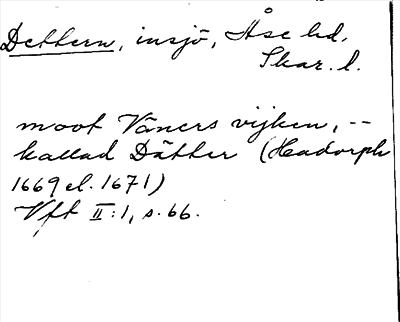 Dettern, insjö, Åse hd.
Skar. l.
moot Väners vijken, --
kallad Dätter (Hadorph
1669 el. 1671)
Vft II:1, s. 66.